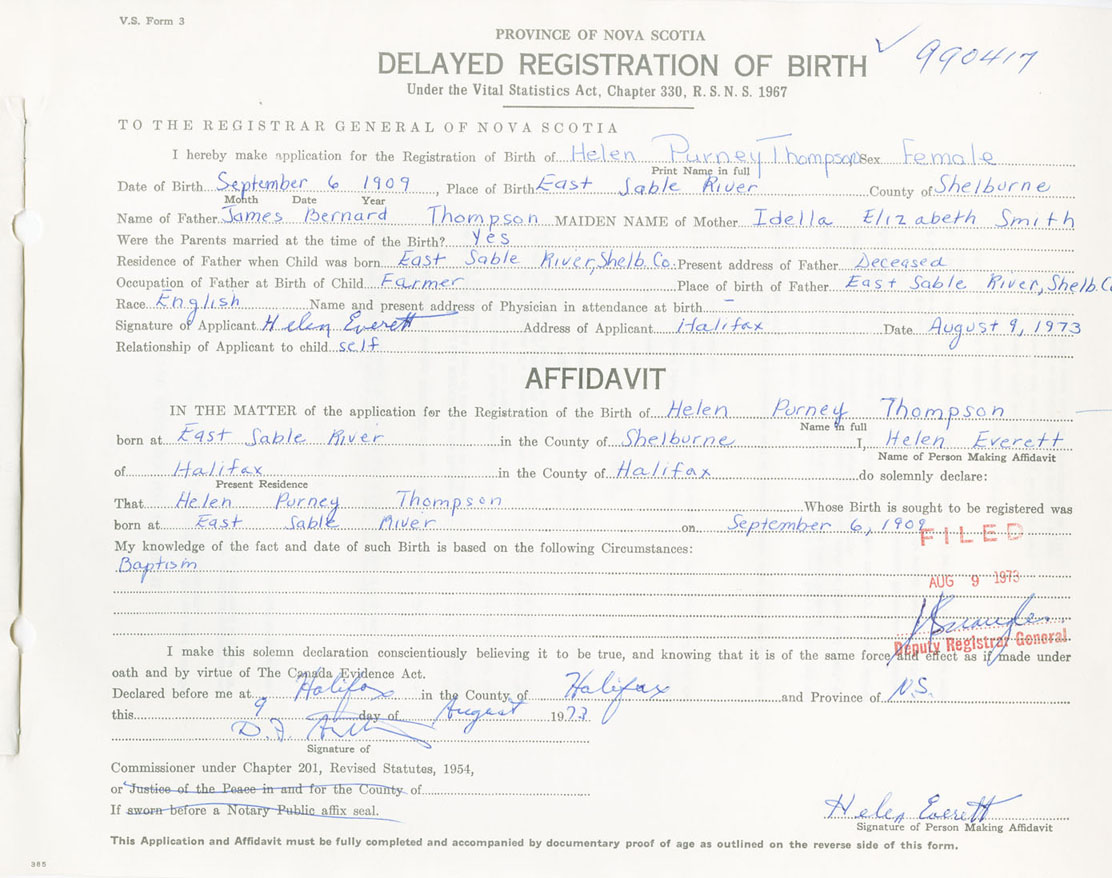 V.S. Form 3
PROVINCE OF NOVA SCOTIA
✓ 990417
DELAYED REGISTRATION OF BIRTH
Under the Vital Statistics Act, Chapter 330, R. S. N. S. 1967
TO THE REGISTRAR GENERAL OF NOVA SCOTIA
I hereby make application for the Registration of Birth of Helen Purney Thompson Sex Female
Print Name in full
Date of Birth September 6 1909, Place of Birth East Sable River County of Shelburne
Month Date Year
Name of Father James Bernard Thompson MAIDEN NAME of Mother Idella Elizabeth Smith
Were the Parents married at the time of the Birth? Yes
Residence of Father when Child was born East Sable River, Shelb. Co. Present address of Father Deceased
Occupation of Father at Birth of Child Farmer Place of birth of Father East Sable River, Shelb. Co
Race English Name and present address of Physician in attendance at birth –
Signature of Applicant Helen Everett Address of Applicant Halifax Date August 9, 1973
Relationship of Applicant to child self
AFFIDAVIT
IN THE MATTER of the application for the Registration of the Birth of Helen Purney Thompson
Name in full
born at East Sable River in the County of Shelburne I, Helen Everett
Name of Person Making Affidavit
of Halifax in the County of Halifax do solemnly declare:
Present Residence
That Helen Purney Thompson Whose Birth is sought to be registered was
born at East Sable River on September 6, 1909
FILED
My knowledge of the fact and date of such Birth is based on the following Circumstances:
Baptism
AUG 9 1973
Deputy Registrar General
I make this solemn declaration conscientiously believing it to be true, and knowing that it is of the same force and effect as if made under
oath and by virtue of The Canada Evidence Act.
Declared before me at Halifax in the County of Halifax and Province of N.S.
this 9 day of August 1973
D. F.
Signature of
Commissioner under Chapter 201, Revised Statutes, 1954,
or Justice of the Peace in and for the County of
If sworn before a Notary Public affix seal.
Helen Everett
Signature of Person Making Affidavit
This Application and Affidavit must be fully completed and accompanied by documentary proof of age as outlined on the reverse side of this form.
385